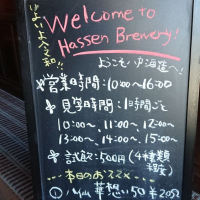 Welcome to
Hassen Brewery!
ようこそ 八海へ!
営業時間:10:00~16:00
見学時間:1時間ごと
10:00~、11:00~、12:00~
13:00~、14:00~、15:00~
試飲:500円(4種類程度)
本日のおススメ
① 華想い50